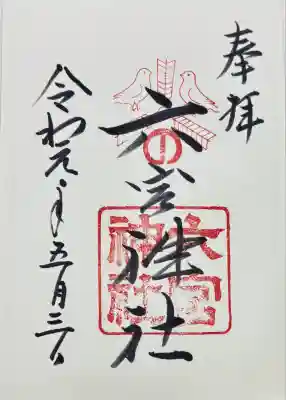 奉拝
六宮神社
六宮
神社
令和元年五月三日